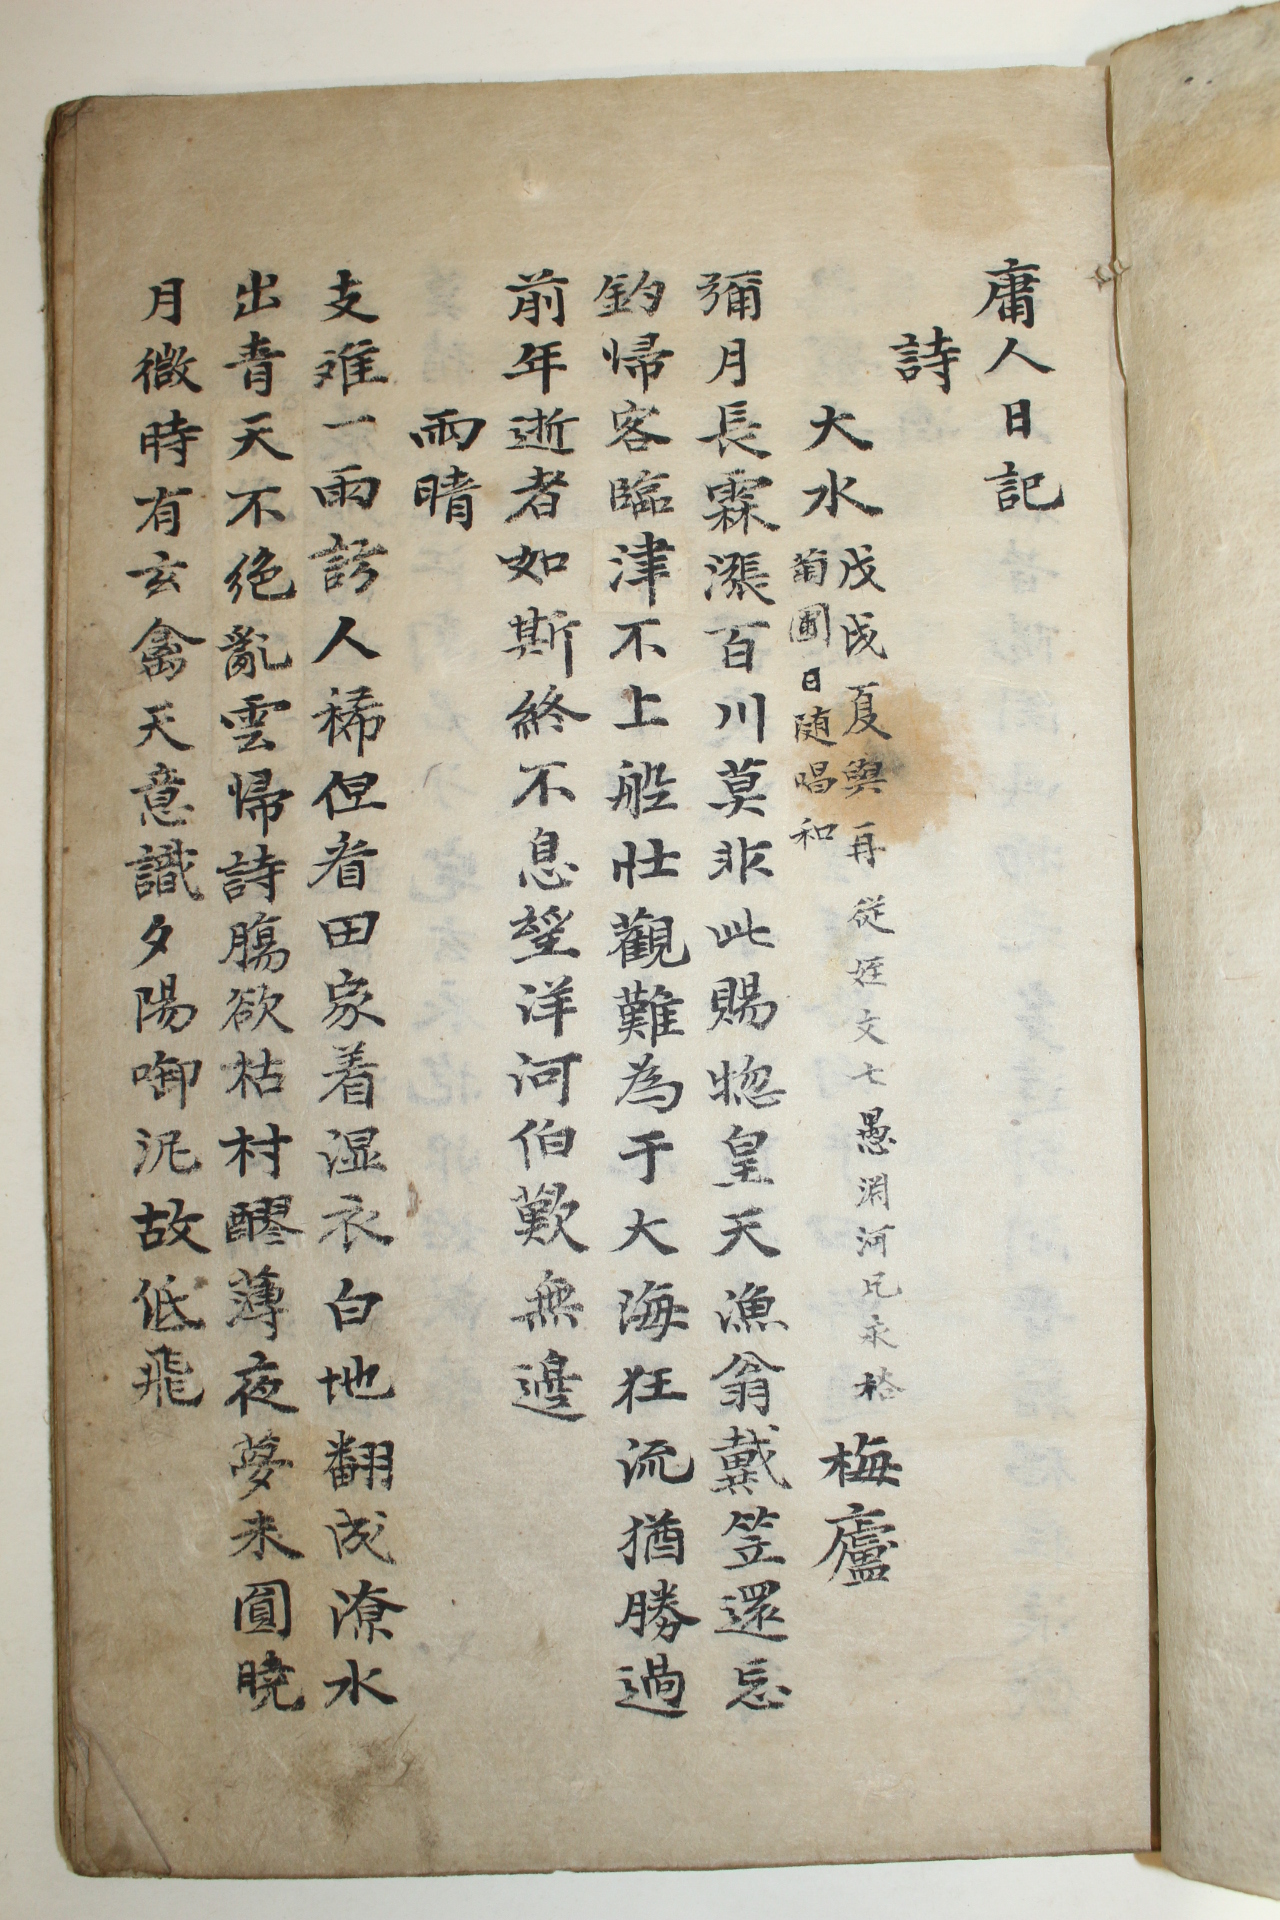 庸人日記
詩
大水 戊戌夏與再從姪文七愚澗河氏永格 梅廬
菊圃日随唱和
彌月長霖漲百川莫非此賜惚皇天漁翁戴笠還忘
釣帰客臨津不上船壮觀難為于大海狂流猶勝過
前年逝者如斯終不息望洋河伯歎無邊
雨晴
支难一雨訪人稀但看田家着湿衣白地翻成潦水
出青天不绝亂雲帰詩膓欲枯村醪薄夜夢未圓曉
月微時有玄禽天意識夕陽啣泥故低飛